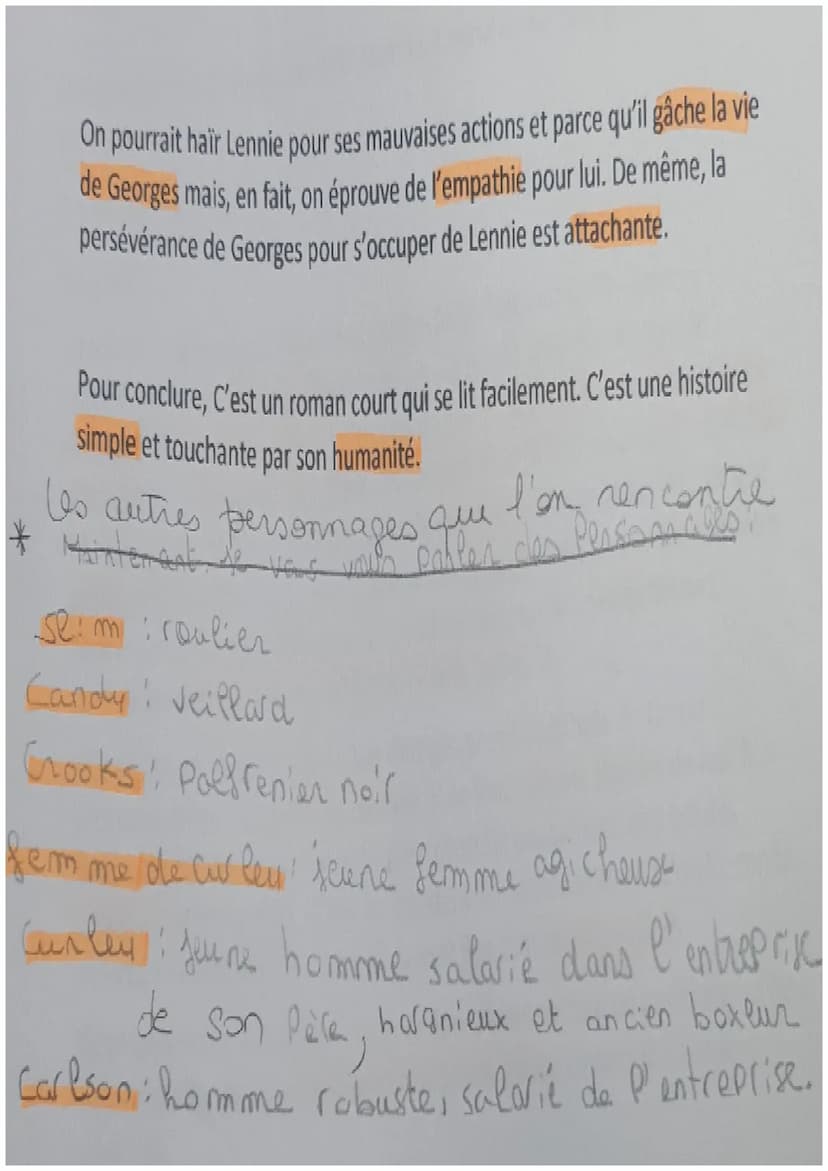 On pourrait haïr Lennie pour ses mauvaises actions et parce qu'il gâche la vie
de Georges mais, en fait, on éprouve de l'empathie pour lui. De même, la
persévérance de Georges pour s'occuper de Lennie est attachante.
Pour conclure, C'est un roman court qui se lit facilement. C'est une histoire
simple et touchante par son humanité.
Les autres personnages que l'on rencontre
* Maintenant je vais vous parler des Personnages:
Slim : roulier
Candy : veillard
Crooks : Palfrenier noir
femme de Curley : jeune femme agicheuse
Curley : jeune homme salarié dans l'entreprise
de son Père, harganieux et ancien boxeur
Carlson : homme robuste, salarié de l'entreprise.